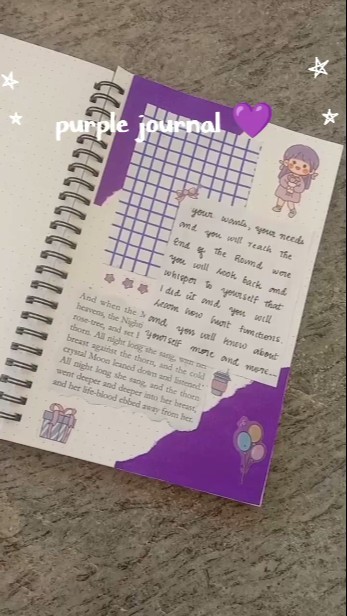 purple journal 💜
your wants, your needs
and you will reach the
end of the Round were
you will look back and
whisper to yourself that
I did it and you will
Learn how most functions
and you will know about
yourself more and more...
And when the
heavens, the Night
rose-tree, and set
thorn. All night long she sang, with her
breast against the thorn, and the cold
crystal Moon leaned down and listened.
All night long she sang, and the thorn
went deeper and deeper into her breast,
and her life-blood ebbed away from her.